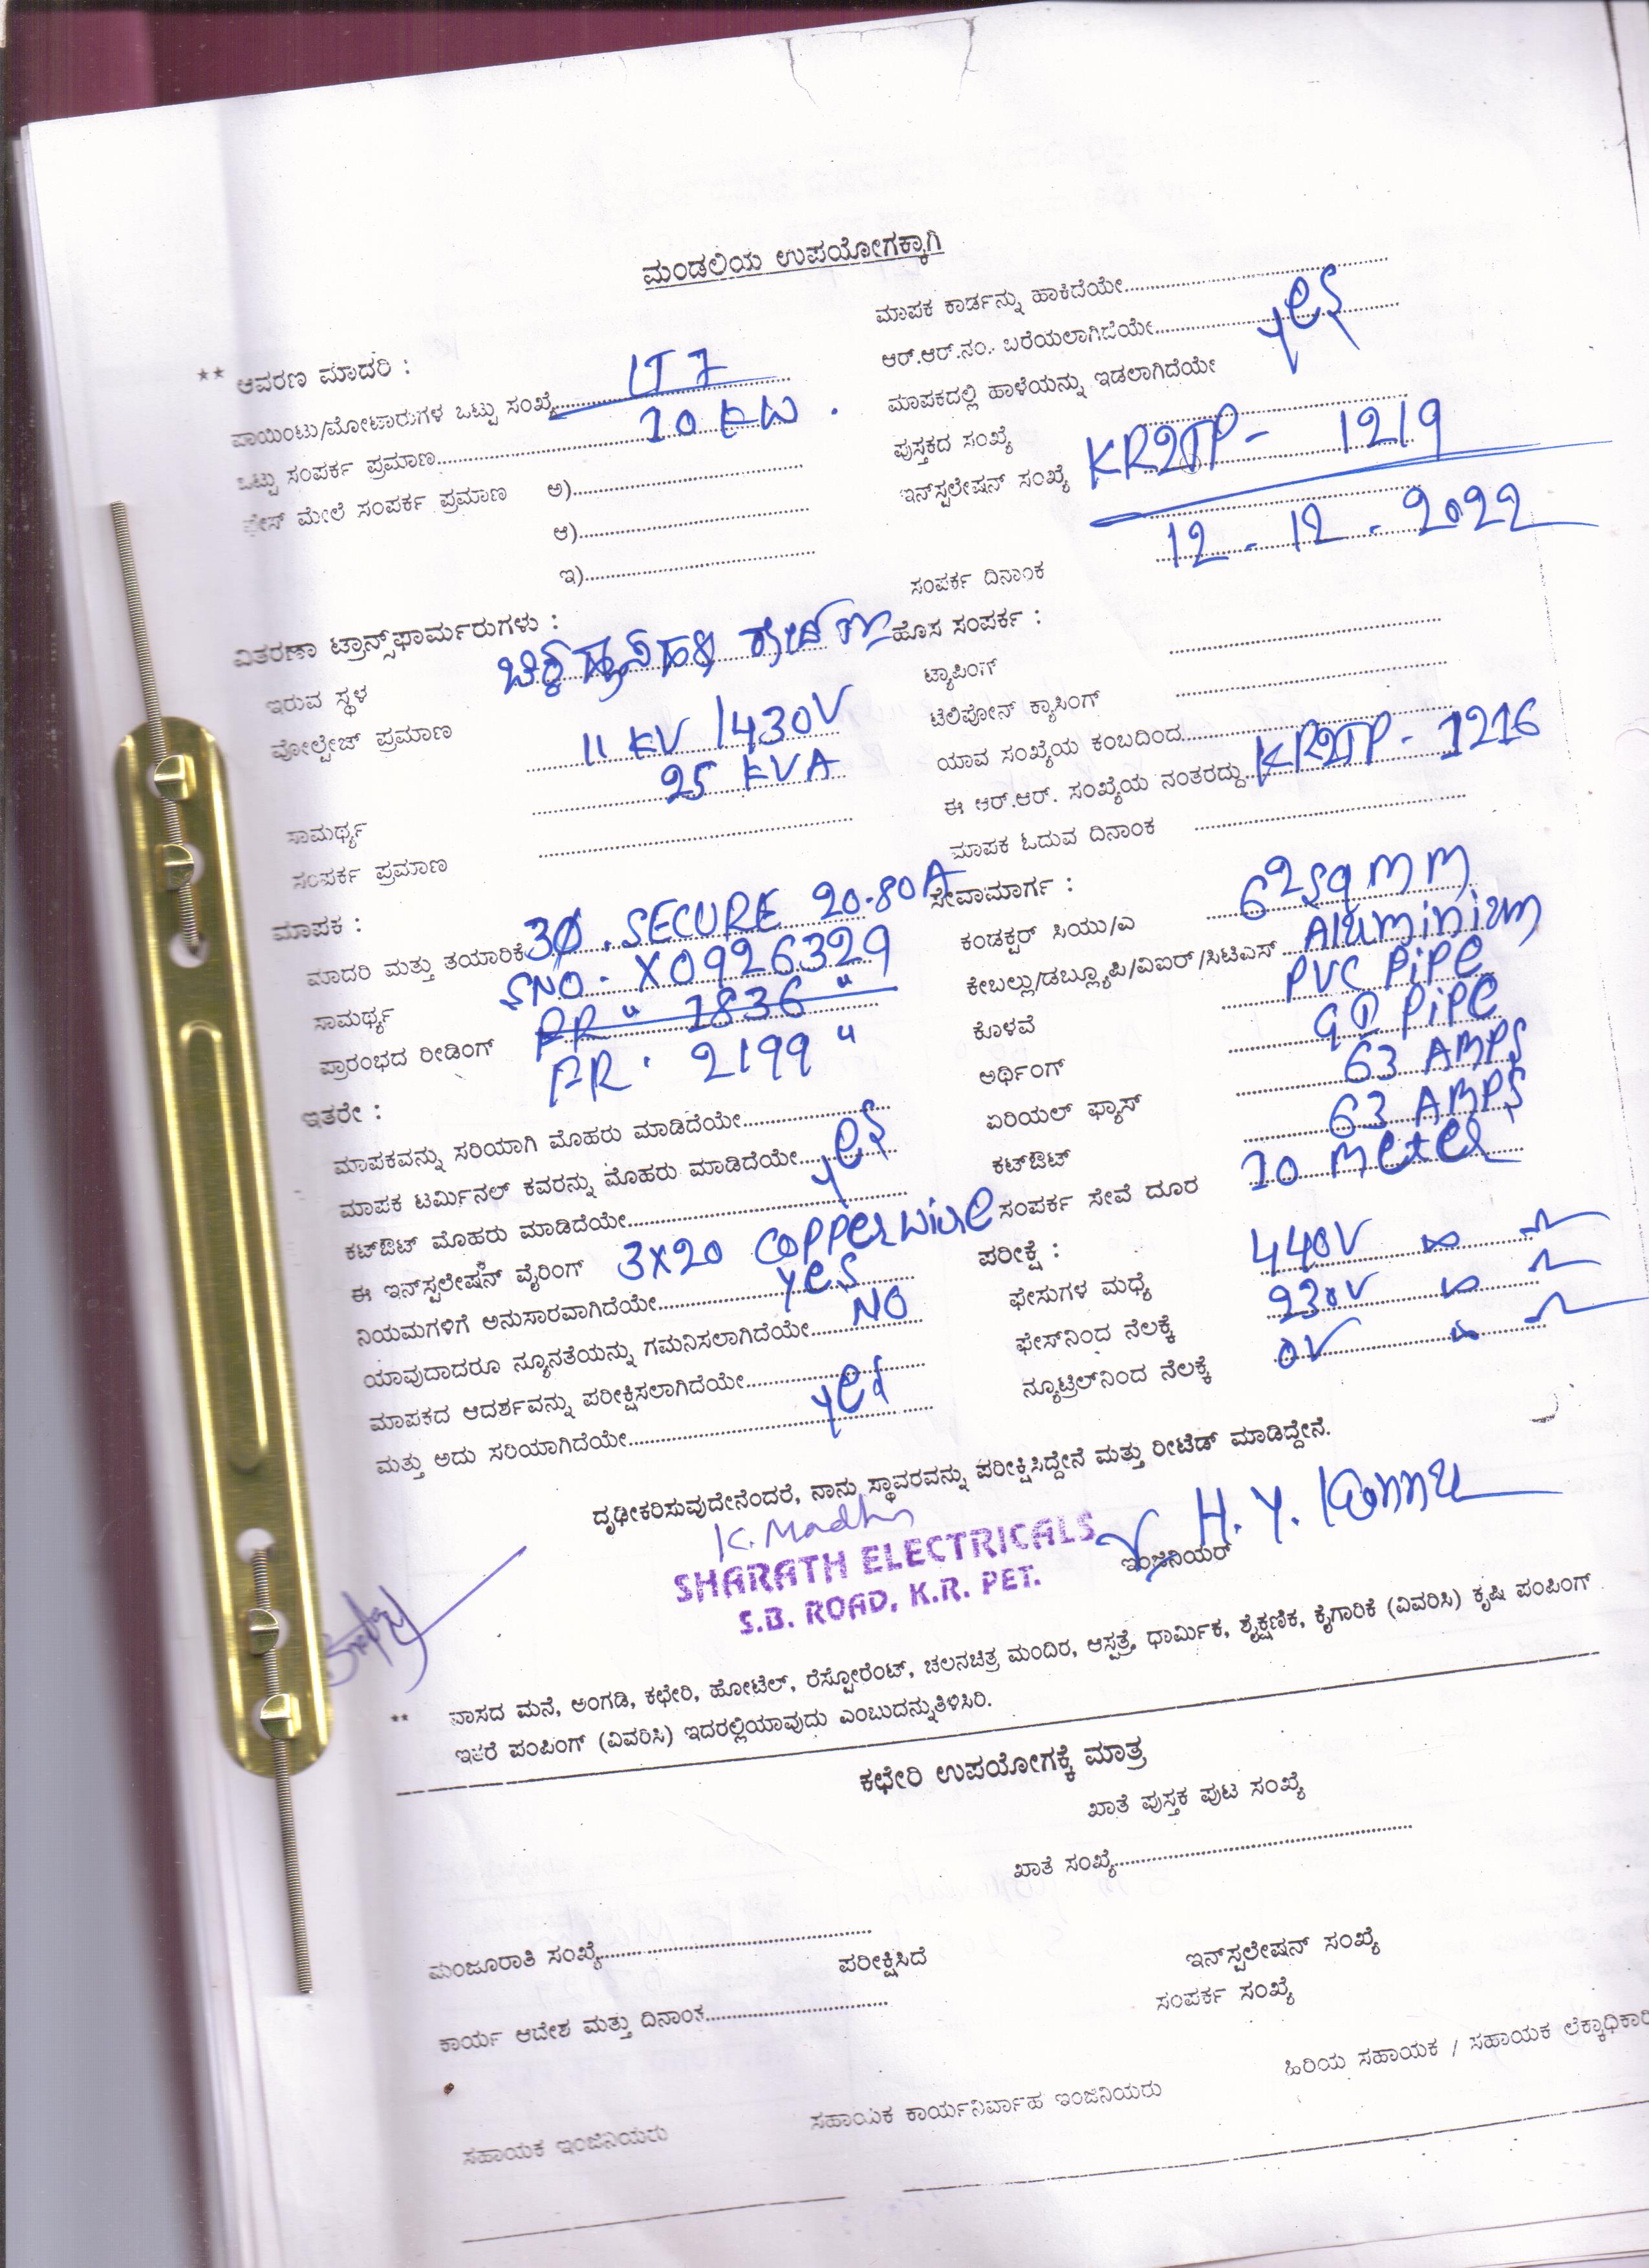 ಮಂಡಲಿಯ ಉಪಯೋಗಕ್ಕಾಗಿ
** ಆವರಣ ಮಾದರಿ :
ಪಾಯಿಂಟು/ಮೋಟಾರುಗಳ ಒಟ್ಟು ಸಂಖ್ಯೆ LT 7
ಒಟ್ಟು ಸಂಪರ್ಕ ಪ್ರಮಾಣ 10 KW .
ಫೇಸ್ ಮೇಲೆ ಸಂಪರ್ಕ ಪ್ರಮಾಣ ಅ)
ಆ)
ಇ)
ವಿತರಣಾ ಟ್ರಾನ್ಸ್‌ಫಾರ್ಮರುಗಳು :
ಇರುವ ಸ್ಥಳ
ವೋಲ್ಟೇಜ್ ಪ್ರಮಾಣ 11 KV /430V
25 KVA
ಸಾಮರ್ಥ್ಯ
ಸಂಪರ್ಕ ಪ್ರಮಾಣ
ಮಾಪಕ :
ಮಾದರಿ ಮತ್ತು ತಯಾರಿಕೆ 3Ø . SECURE 20-80A
ಸಾಮರ್ಥ್ಯ SNO - X0926329
ಪ್ರಾರಂಭದ ರೀಡಿಂಗ್ FR " 1836 "
FR . 2199 "
ಇತರೇ :
ಮಾಪಕವನ್ನು ಸರಿಯಾಗಿ ಮೊಹರು ಮಾಡಿದೆಯೇ
ಮಾಪಕ ಟರ್ಮಿನಲ್ ಕವರನ್ನು ಮೊಹರು ಮಾಡಿದೆಯೇ yes
ಕಟ್‌ಔಟ್ ಮೊಹರು ಮಾಡಿದೆಯೇ
ಈ ಇನ್‌ಸ್ಟಲೇಷನ್ ವೈರಿಂಗ್ 3X20 copper wire
ನಿಯಮಗಳಿಗೆ ಅನುಸಾರವಾಗಿದೆಯೇ yes
ಯಾವುದಾದರೂ ನ್ಯೂನತೆಯನ್ನು ಗಮನಿಸಲಾಗಿದೆಯೇ NO
ಮಾಪಕದ ಆದರ್ಶವನ್ನು ಪರೀಕ್ಷಿಸಲಾಗಿದೆಯೇ
ಮತ್ತು ಅದು ಸರಿಯಾಗಿದೆಯೇ yes
ಮಾಪಕ ಕಾರ್ಡನ್ನು ಹಾಕಿದೆಯೇ
ಆರ್.ಆರ್.ನಂ. ಬರೆಯಲಾಗಿದೆಯೇ yes
ಮಾಪಕದಲ್ಲಿ ಹಾಳೆಯನ್ನು ಇಡಲಾಗಿದೆಯೇ
ಪುಸ್ತಕದ ಸಂಖ್ಯೆ
ಇನ್‌ಸ್ಟಲೇಷನ್ ಸಂಖ್ಯೆ KR2TP - 1219
ಸಂಪರ್ಕ ದಿನಾಂಕ 12 - 12 - 2022
ಹೊಸ ಸಂಪರ್ಕ :
ಟ್ಯಾಪಿಂಗ್
ಟೆಲಿಪೋನ್ ಕ್ಯಾಸಿಂಗ್
ಯಾವ ಸಂಖ್ಯೆಯ ಕಂಬದಿಂದ
ಈ ಆರ್.ಆರ್. ಸಂಖ್ಯೆಯ ನಂತರದ್ದು KR2TP - 1216
ಮಾಪಕ ಓದುವ ದಿನಾಂಕ
ಸೇವಾಮಾರ್ಗ :
ಕಂಡಕ್ಟರ್ ಸಿಯು/ಎ 6²sqmm
ಕೇಬಲ್ಲು/ಡಬ್ಲ್ಯೂಪಿ/ವಿಐರ್/ಸಿಟಿಎಸ್ Aluminium
ಕೊಳವೆ PVC Pipe
ಅರ್ಥಿಂಗ್ GI Pipe
ಏರಿಯಲ್ ಫ್ಯೂಸ್ 63 AMPS
ಕಟ್‌ಔಟ್ 63 AMPS
ಸಂಪರ್ಕ ಸೇವೆ ದೂರ 10 meter
ಪರೀಕ್ಷೆ :
ಫೇಸುಗಳ ಮಧ್ಯೆ 440V ∞
ಫೇಸ್‌ನಿಂದ ನೆಲಕ್ಕೆ 230V ∞
ನ್ಯೂಟ್ರಲ್‌ನಿಂದ ನೆಲಕ್ಕೆ 0V ∞
ದೃಢೀಕರಿಸುವುದೇನೆಂದರೆ, ನಾನು ಸ್ಥಾವರವನ್ನು ಪರೀಕ್ಷಿಸಿದ್ದೇನೆ ಮತ್ತು ರೀಟೆಡ್ ಮಾಡಿದ್ದೇನೆ.
K. Madhu
SHARATH ELECTRICALS
S.B. ROAD, K.R. PET.
H. Y.
ಇಂಜಿನಿಯರ್
** ವಾಸದ ಮನೆ, ಅಂಗಡಿ, ಕಛೇರಿ, ಹೋಟೆಲ್, ರೆಸ್ಟೋರೆಂಟ್, ಚಲನಚಿತ್ರ ಮಂದಿರ, ಆಸ್ಪತ್ರೆ, ಧಾರ್ಮಿಕ, ಶೈಕ್ಷಣಿಕ, ಕೈಗಾರಿಕೆ (ವಿವರಿಸಿ) ಕೃಷಿ ಪಂಪಿಂಗ್
ಇತರೆ ಪಂಪಿಂಗ್ (ವಿವರಿಸಿ) ಇದರಲ್ಲಿಯಾವುದು ಎಂಬುದನ್ನುತಿಳಿಸಿರಿ.
ಕಛೇರಿ ಉಪಯೋಗಕ್ಕೆ ಮಾತ್ರ
ಖಾತೆ ಪುಸ್ತಕ ಪುಟ ಸಂಖ್ಯೆ
ಖಾತೆ ಸಂಖ್ಯೆ
ಮಂಜೂರಾತಿ ಸಂಖ್ಯೆ
ಪರೀಕ್ಷಿಸಿದೆ
ಇನ್‌ಸ್ಟಲೇಷನ್ ಸಂಖ್ಯೆ
ಕಾರ್ಯ ಆದೇಶ ಮತ್ತು ದಿನಾಂಕ
ಸಂಪರ್ಕ ಸಂಖ್ಯೆ
ಸಹಾಯಕ ಇಂಜಿನಿಯರು
ಸಹಾಯಕ ಕಾರ್ಯನಿರ್ವಾಹ ಇಂಜಿನಿಯರು
ಹಿರಿಯ ಸಹಾಯಕ / ಸಹಾಯಕ ಲೆಕ್ಕಾಧಿಕಾರಿ